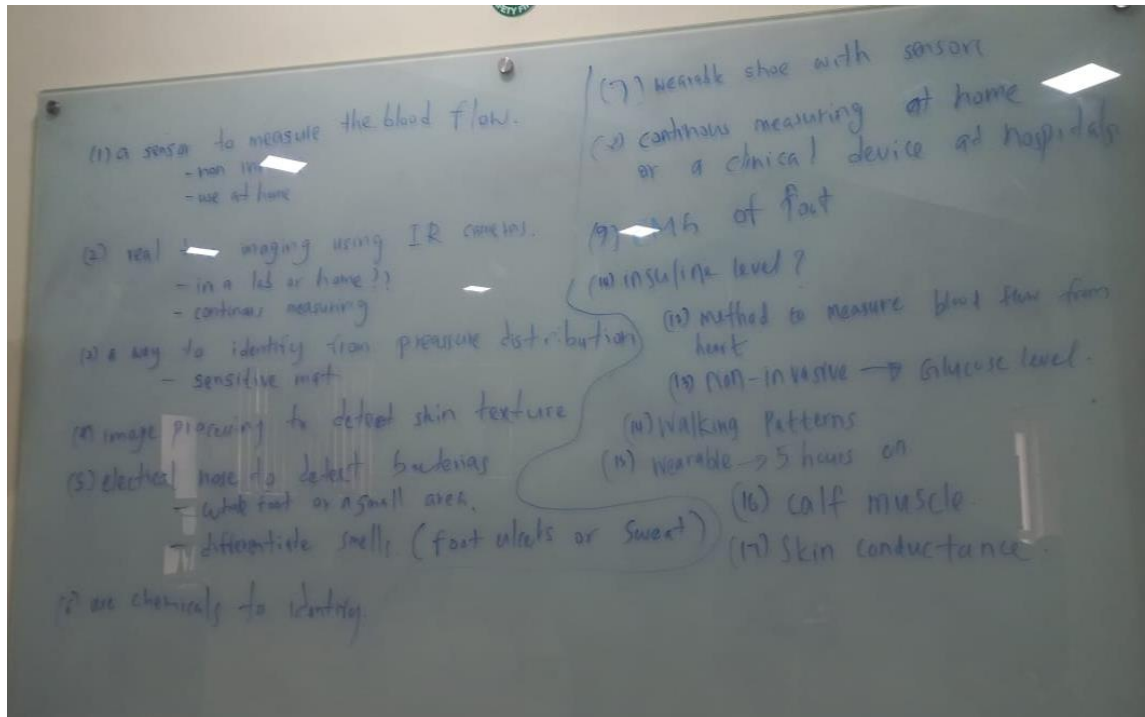 (1) a sensor to measure the blood flow.
- non
- use at home
(2) real imaging using IR cameras.
- in a lab or home??
- continous measuring
(3) a way to identify from preassure distribution
- sensitive mat
(4) image processing to detect skin texture
(5) electical nose to detect bacterias
- whole foot or a small area.
- differentiate smells (foot ulcets or sweat)
(6) are chemicals to identify.
(7) wearable shoe with sensors
(8) continous measuring at home
or a clinical device at hospitals
(9) of foot
(10) insuline level?
(12) method to measure blood flow from
heart
(13) non-invasive → Glucose level.
(14) Walking Patterns
(15) wearable → 5 hours on
(16) calf muscle.
(17) Skin conductance.